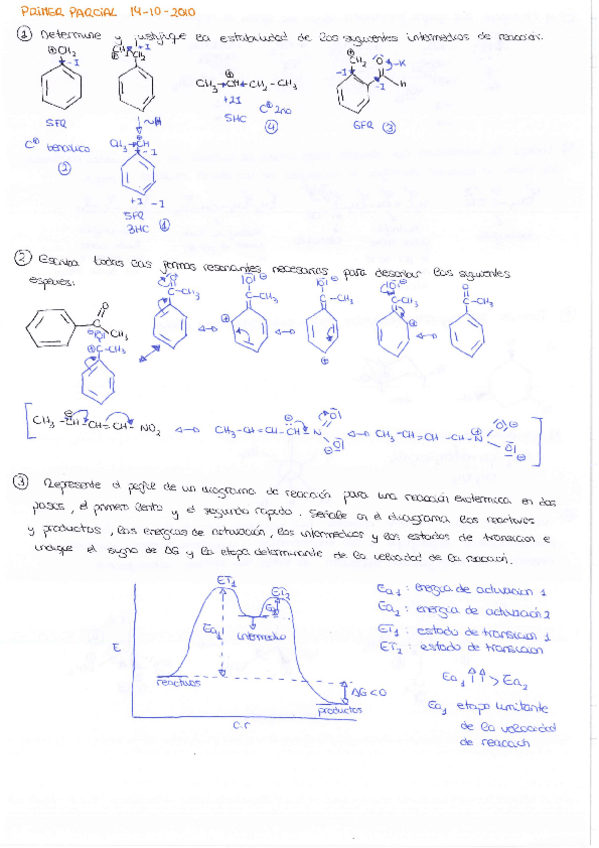 PRIMER PARCIAL 14-10-2010
① Determine y justifique la estabilidad de los siguientes intermedios de reacción.
⊕CH₂ -I
5FR
C⊕ bencílico
②
+I
CH₂
∼H
CH₃ → CH
-I
+I -I
5FR
3HC ①
CH₃→CH←CH₂-CH₃
+2I
5HC
C⊕ 2rio
④
CH₂
-I
O
-K
-I
H
6FR ③
② Escriba todas las formas resonantes necesarias para describir las siguientes
especies:
O
C
CH₃
C-CH₃
C-CH₃
C-CH₃
C-CH₃
C-CH₃
C-CH₃
CH₃-CH-CH=CH-NO₂ ↔ CH₃-CH=CH-CH-N ↔ CH₃-CH=CH-CH-N
③ Represente el perfil de un diagrama de reacción para una reacción exotérmica en dos
pasos, el primero lento y el segundo rápido. Señale en el diagrama los reactivos
y productos, las energías de activación, los intermedios y los estados de transición e
indique el signo de ΔG y la etapa determinante de la velocidad de la reacción.
ET₁
ET₂
Ea₁
Ea₂
intermedio
E
reactivos
ΔG<0
productos
c.r
Ea₁: energía de activación 1
Ea₂: energía de activación 2
ET₁: estado de transición 1
ET₂: estado de transición
Ea₁ ↑↑ > Ea₂
Ea₁ etapa limitante
de la velocidad
de reacción